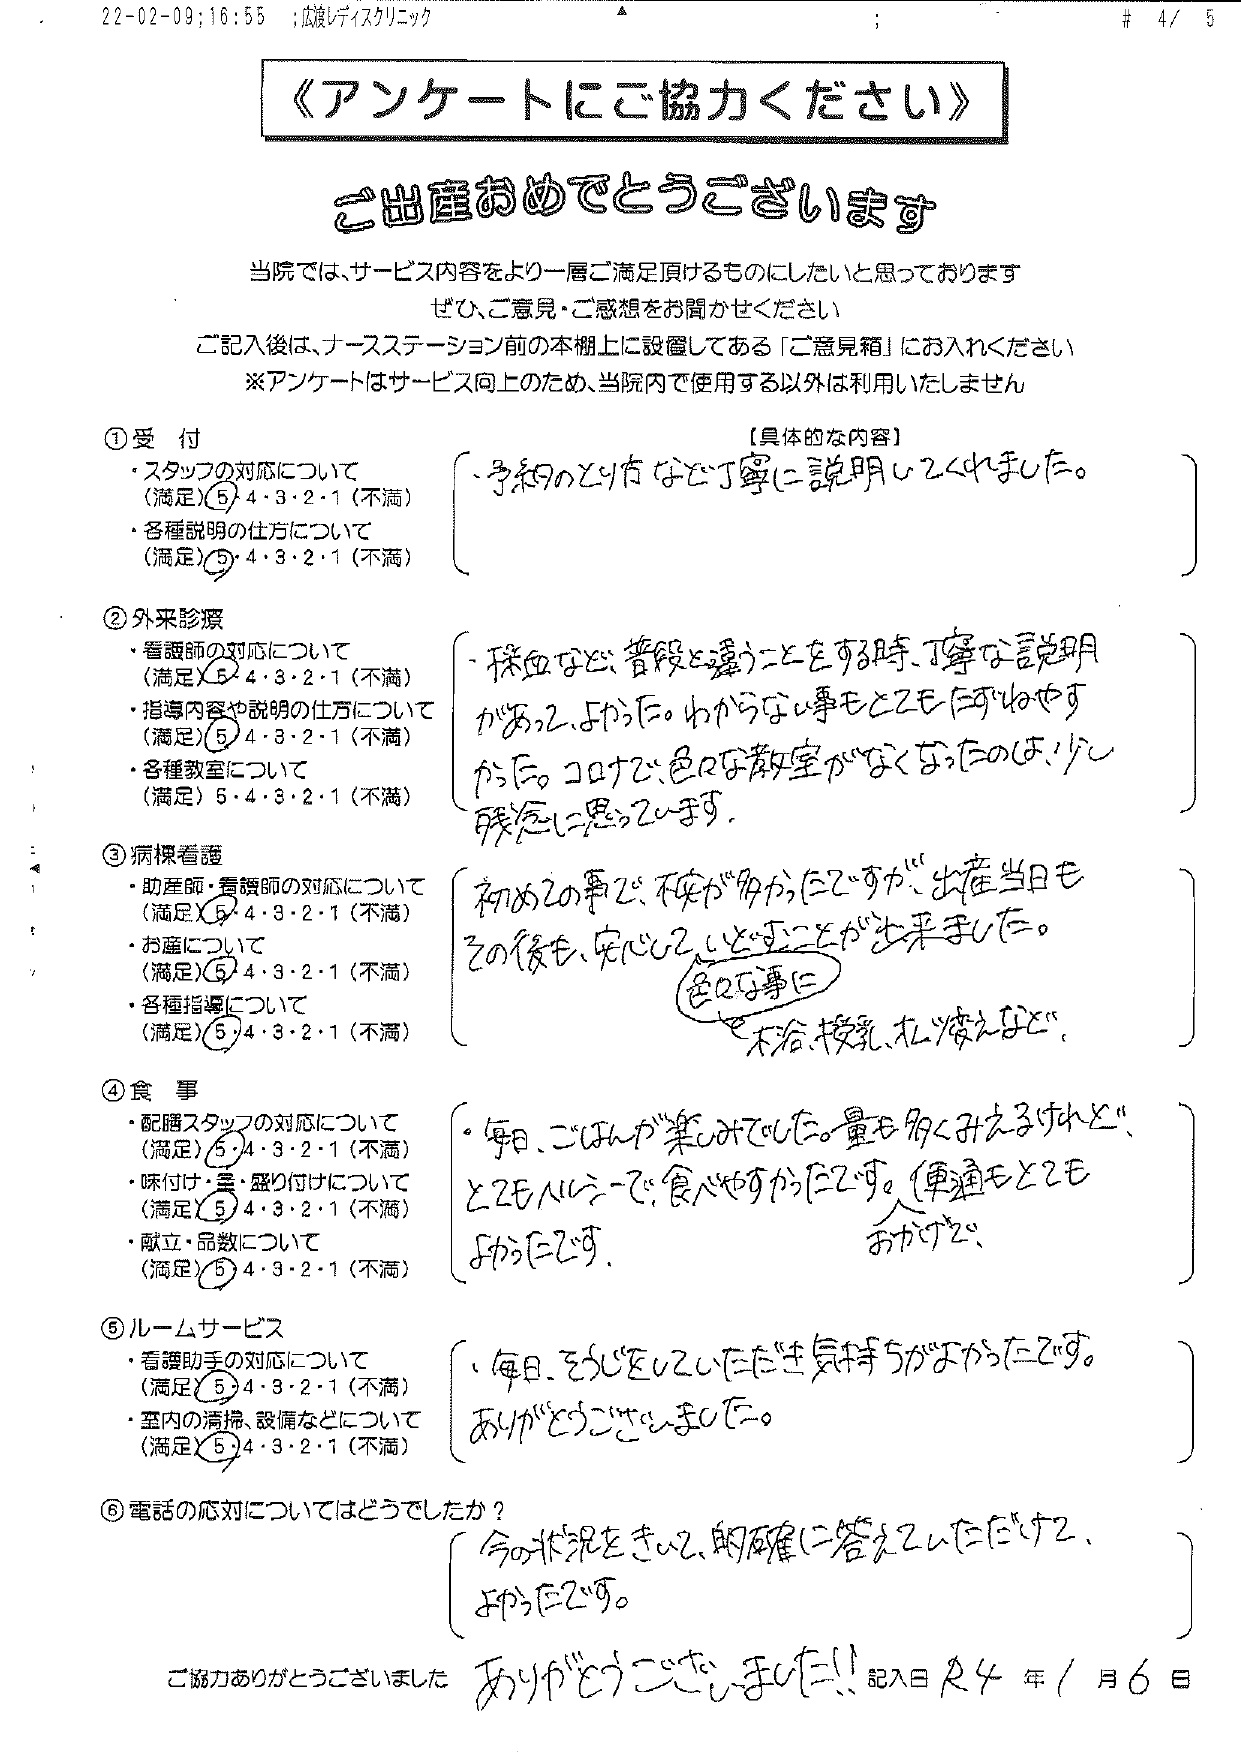 22-02-09;16:55 ;広渡レディスクリニック ; # 4/ 5
《アンケートにご協力ください》
ご出産おめでとうございます
当院では、サービス内容をより一層ご満足頂けるものにしたいと思っております
ぜひ、ご意見・ご感想をお聞かせください
ご記入後は、ナースステーション前の本棚上に設置してある「ご意見箱」にお入れください
※アンケートはサービス向上のため、当院内で使用する以外は利用いたしません
①受 付
【具体的な内容】
・スタッフの対応について
(満足)5・4・3・2・1(不満)
・各種説明の仕方について
(満足)5・4・3・2・1(不満)
・予約のとり方など丁寧に説明してくれました。
②外来診療
・看護師の対応について
(満足)5・4・3・2・1(不満)
・指導内容や説明の仕方について
(満足)5・4・3・2・1(不満)
・各種教室について
(満足)5・4・3・2・1(不満)
・採血など、普段と違うことをする時、丁寧な説明
があって、よかった。わからない事もとてもたずねやす
かった。コロナで、色々な教室がなくなったのは、少し
残念に思っています.
③病棟看護
・助産師・看護師の対応について
(満足)5・4・3・2・1(不満)
・お産について
(満足)5・4・3・2・1(不満)
・各種指導について
(満足)5・4・3・2・1(不満)
初めての事で、不安が多かったですが、出産当日も
その後も、安心して、いどむことが出来ました。
色々な事に
沐浴、授乳、オムツ変えなど.
④食 事
・配膳スタッフの対応について
(満足)5・4・3・2・1(不満)
・味付け・量・盛り付けについて
(満足)5・4・3・2・1(不満)
・献立・品数について
(満足)5・4・3・2・1(不満)
・毎日、ごはんが楽しみでした。量も多くみえるけれど、
とてもヘルシーで、食べやすかったです。便通もとても
おかげで、
よかったです.
⑤ルームサービス
・看護助手の対応について
(満足)5・4・3・2・1(不満)
・室内の清掃、設備などについて
(満足)5・4・3・2・1(不満)
・毎日、そうじをしていただき気持ちがよかったです。
ありがとうございました。
⑥電話の応対についてはどうでしたか?
今の状況をきいて、的確に答えていただけて、
よかったです。
ご協力ありがとうございました ありがとうございました!! 記入日 R4 年 1 月 6 日